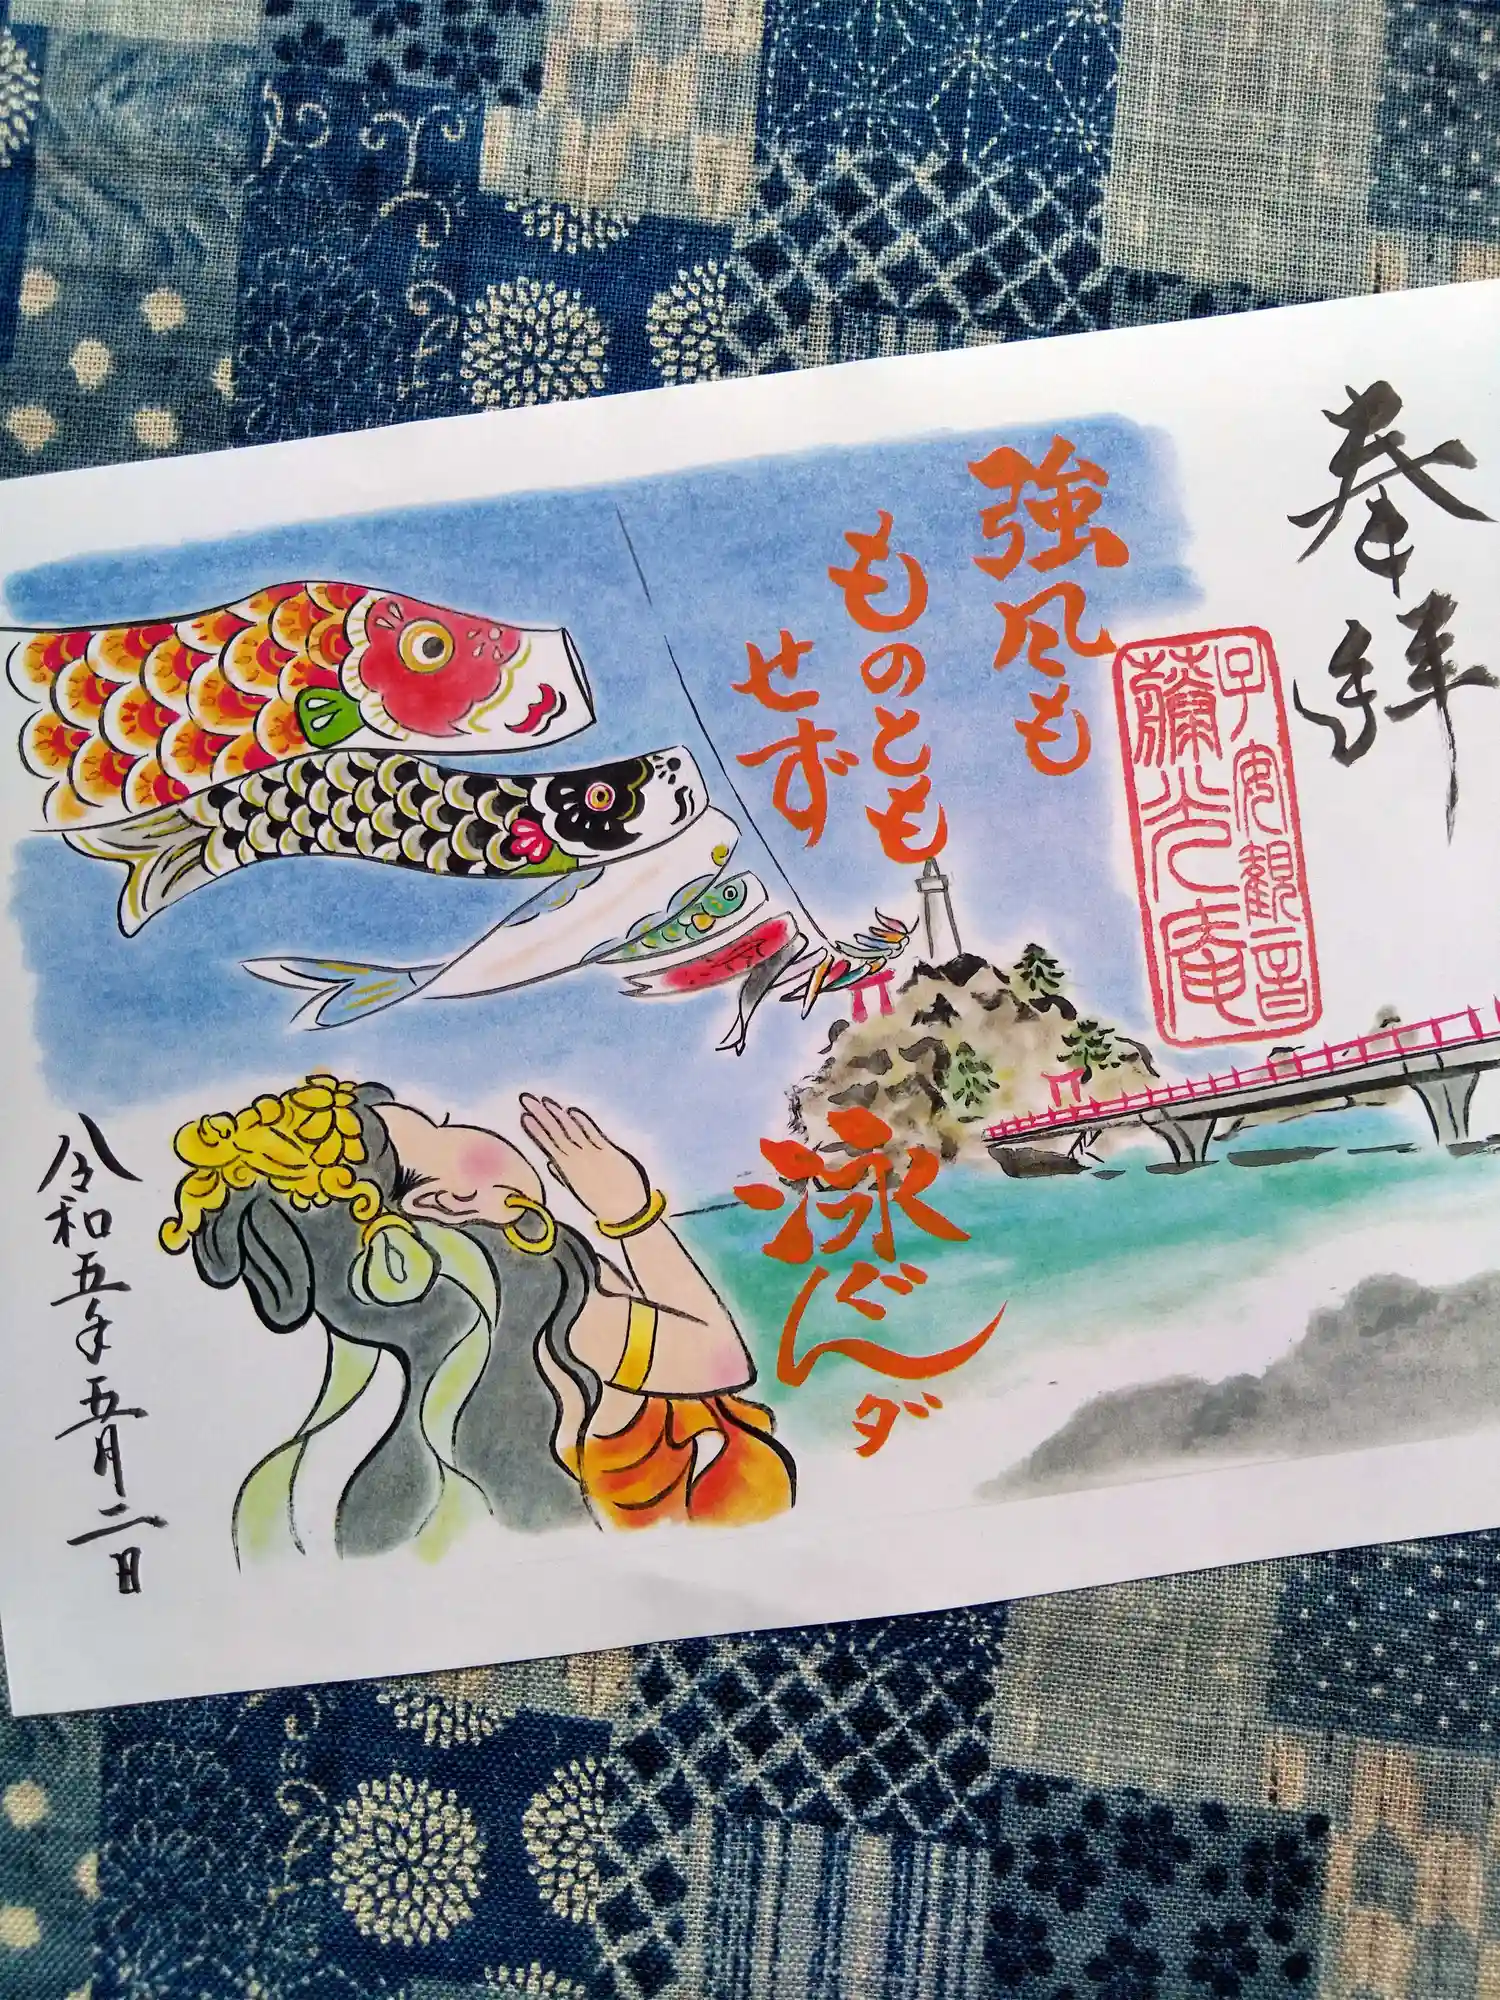 奉拝
子安観音
藤光庵
強風も
ものとも
せず
泳ぐんダ
令和五年五月二日